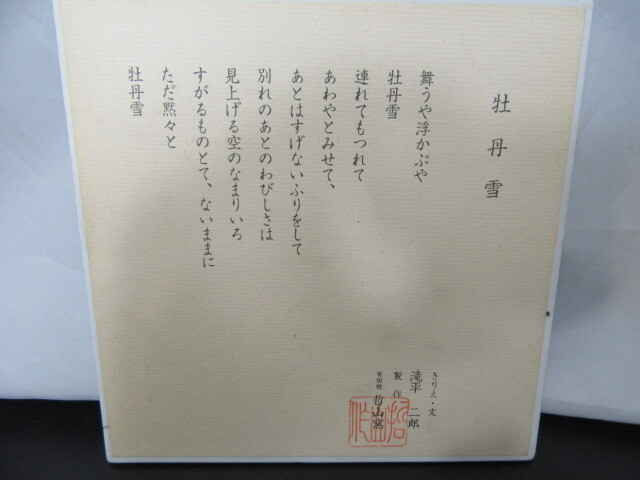 牡丹雪
舞うや浮かぶや
牡丹雪
連れてもつれて
あわやとみせて、
あとはすげないふりをして
別れのあとのわびしさは
見上げる空のなまりいろ
すがるものとて、ないままに
ただ黙々と
牡丹雪
きりえ・文
滝平 二郎
製作
有田焼 哲山窯